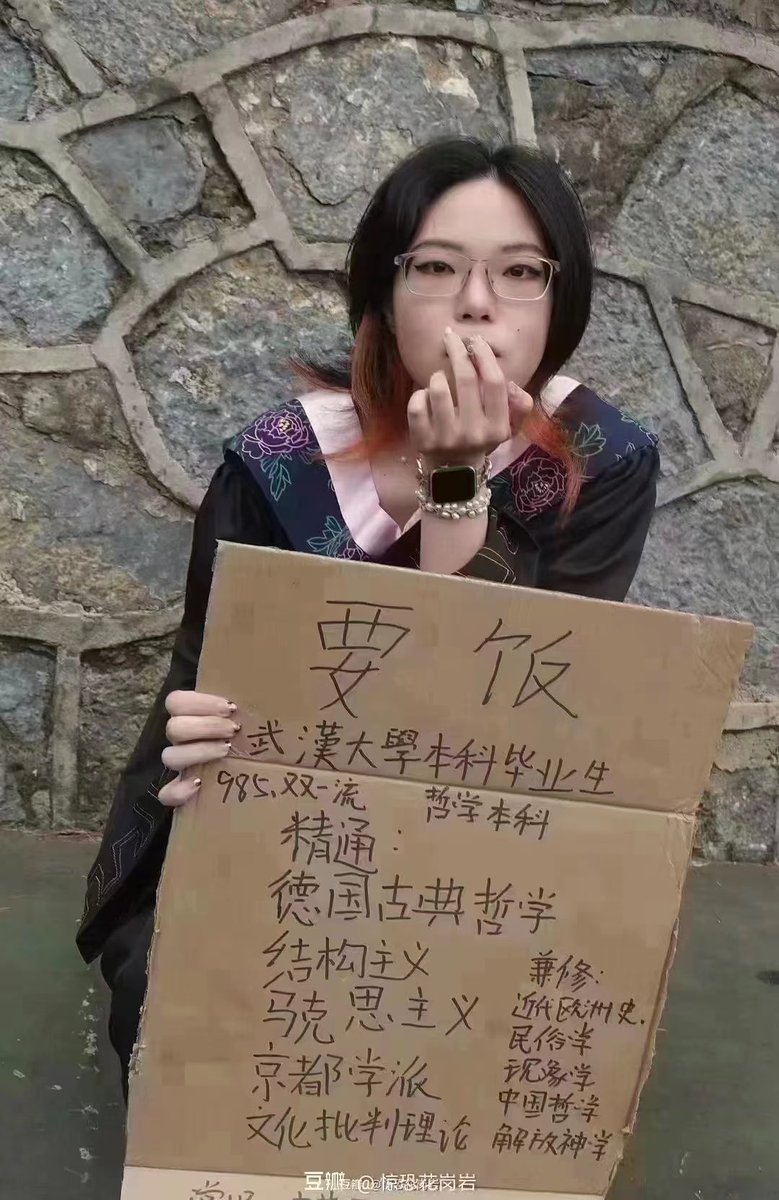 要饭
武漢大學本科毕业生
985.双一流 哲学本科
精通:
德国古典哲学
结构主义
马克思主义
京都学派
文化批判理论
兼修:
近代欧洲史.
民俗学
现象学
中国哲学
解放神学
豆瓣 @惊恐花岗岩